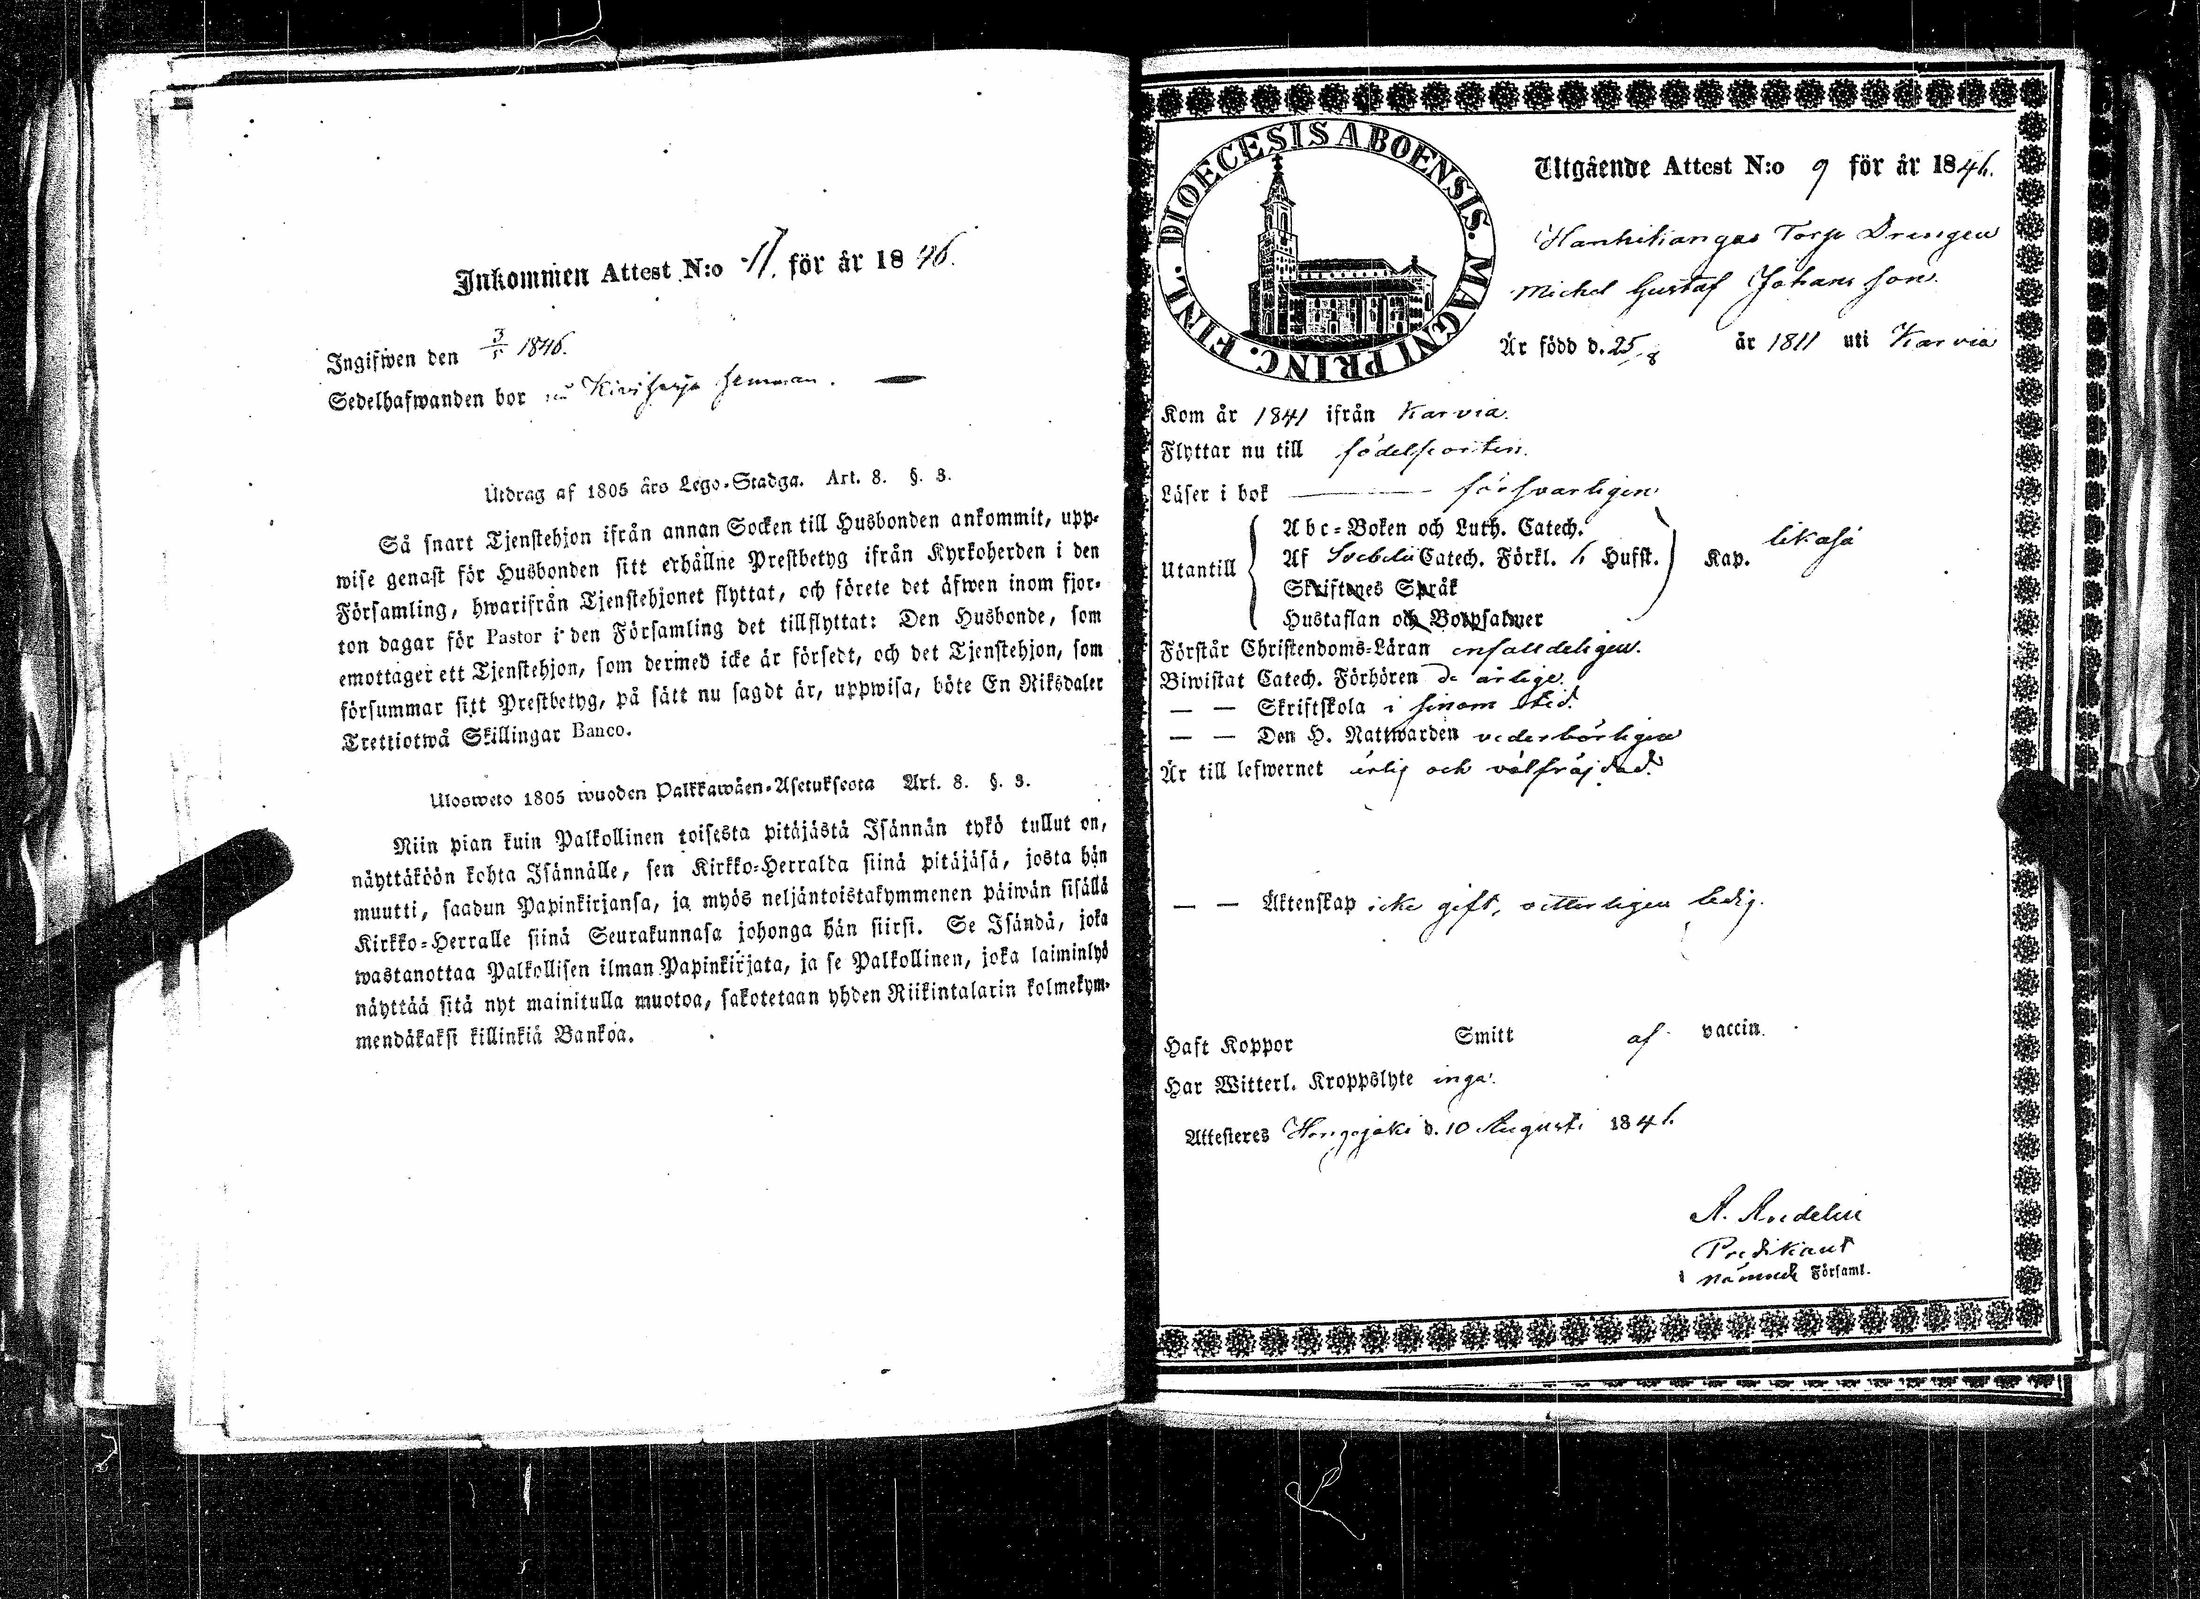 Inkommen Attest N:o 17. för år 1846.
Ingifwen den 3/5 1846.
Sedelhafwanden bor Kiviharju hemman.
Utdrag af 1805 års Lego-Stadga. Art. 8. §. 3.
Så snart Tjenstehjon ifrån annan Socken till Husbonden ankommit, upp-
wise genast för Husbonden sitt erhållne Prestbetyg ifrån Kyrkoherden i den
Församling, hwarifrån Tjenstehjonet flyttat, och förete det äfwen inom fjor-
ton dagar för Pastor i den Församling det tillflyttat: Den Husbonde, som
emottager ett Tjenstehjon, som dermed icke är försedt, och det Tjenstehjon, som
försummar sitt Prestbetyg, på sätt nu sagdt är, uppwisa, böte En Riksdaler
Trettiotwå Skillingar Banco.
Ulosweto 1805 wuoden Palkkawäen-Asetuksesta Art. 8. §. 3.
Niin pian kuin Palkollinen toisesta pitäjästä Isännän tykö tullut on,
näyttäköön kohta Isännälle, sen Kirkko-Herralda siinä pitäjäsä, josta hän
muutti, saadun Papinkirjansa, ja myös neljäntoistakymmenen päiwän sisällä
Kirkko-Herralle siinä Seurakunnasa johonga hän siirsi. Se Isändä, joka
wastanottaa Palkollisen ilman Papinkirjata, ja se Palkollinen, joka laiminlyö
näyttää sitä nyt mainitulla muotoa, sakotetaan yhden Riikintalarin kolmekym-
mendäkaksi killinkiä Bankoa.
DIOECESIS ABOENSIS. MAGNI PRINC. FINL.
Utgående Attest N:o 9 för år 1846.
Hanhikangas Torp Drengen
Michel Gustaf Johansson
Är född d. 25/8 år 1811 uti Karvia
Kom år 1841 ifrån Karvia.
Flyttar nu till födelseorten.
Läser i bok försvarligen
Utantill
Abc-Boken och Luth. Catech.
Af Svebelii Catech. Förkl. Hufst.
Skriftenes Språk
Hustaflan och Botpsalmer
Kap. likaså
Förstår Christendoms-Läran enfalldeligen.
Biwistat Catech. Förhören de årlige.
— — Skriftskola i sinom tid.
— — Den H. Nattwarden vederbörligen
Är till lefwernet ärlig och välfräjdad.
— — Äktenskap icke gift, vitterligen ledig.
Haft Koppor Smitt af vaccin.
Har Witterl. Kroppslyte inga.
Attesteres Hongojoki d. 10 Augusti 1846.
A.
Predikant
i nämnde Församl.